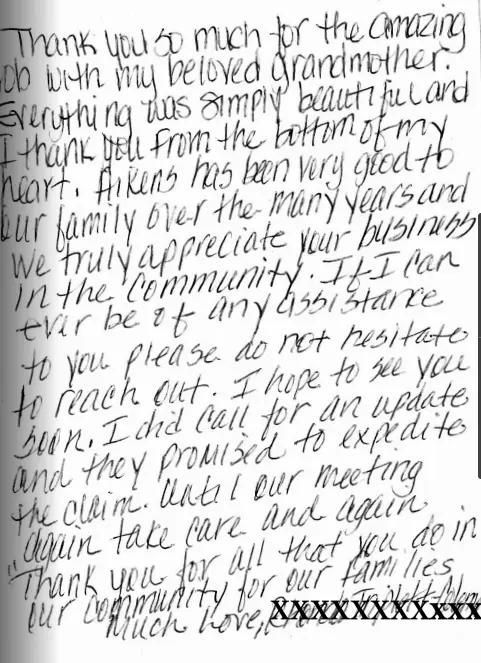 Thank you so much for the amazing
ob with my beloved grandmother.
Everything was simply beautiful and
I thank you from the bottom of my
heart. Aikens has been very good to
our family over the many years and
we truly appreciate your business
in the community. If I can
ever be of any assistance
to you please do not hesitate
to reach out. I hope to see you
soon. I did call for an update
and they promised to expedite
the claim. Until our meeting
again take care and again
"Thank you for all that you do in
our community for our families
Much Love, XXXXXXXXXXX